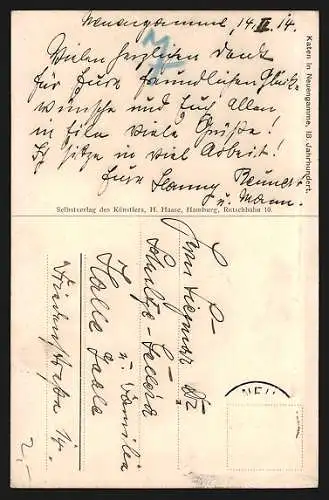 Neuengamme, 14.II.14.
Vielen herzlichen Dank
für Eure freundlichen Glück-
wünsche und Euch Allen
in Eile viele Grüße!
Ich sitze in viel Arbeit!
Eure Hanny
u. Mann.
Katen in Neuengamme, 18. Jahrhundert.
Selbstverlag des Künstlers, H. Haase, Hamburg, Rutschbahn 10.
Herrn
Schultze-
u. Familie
Halle Saale
14.
NEU
2,-